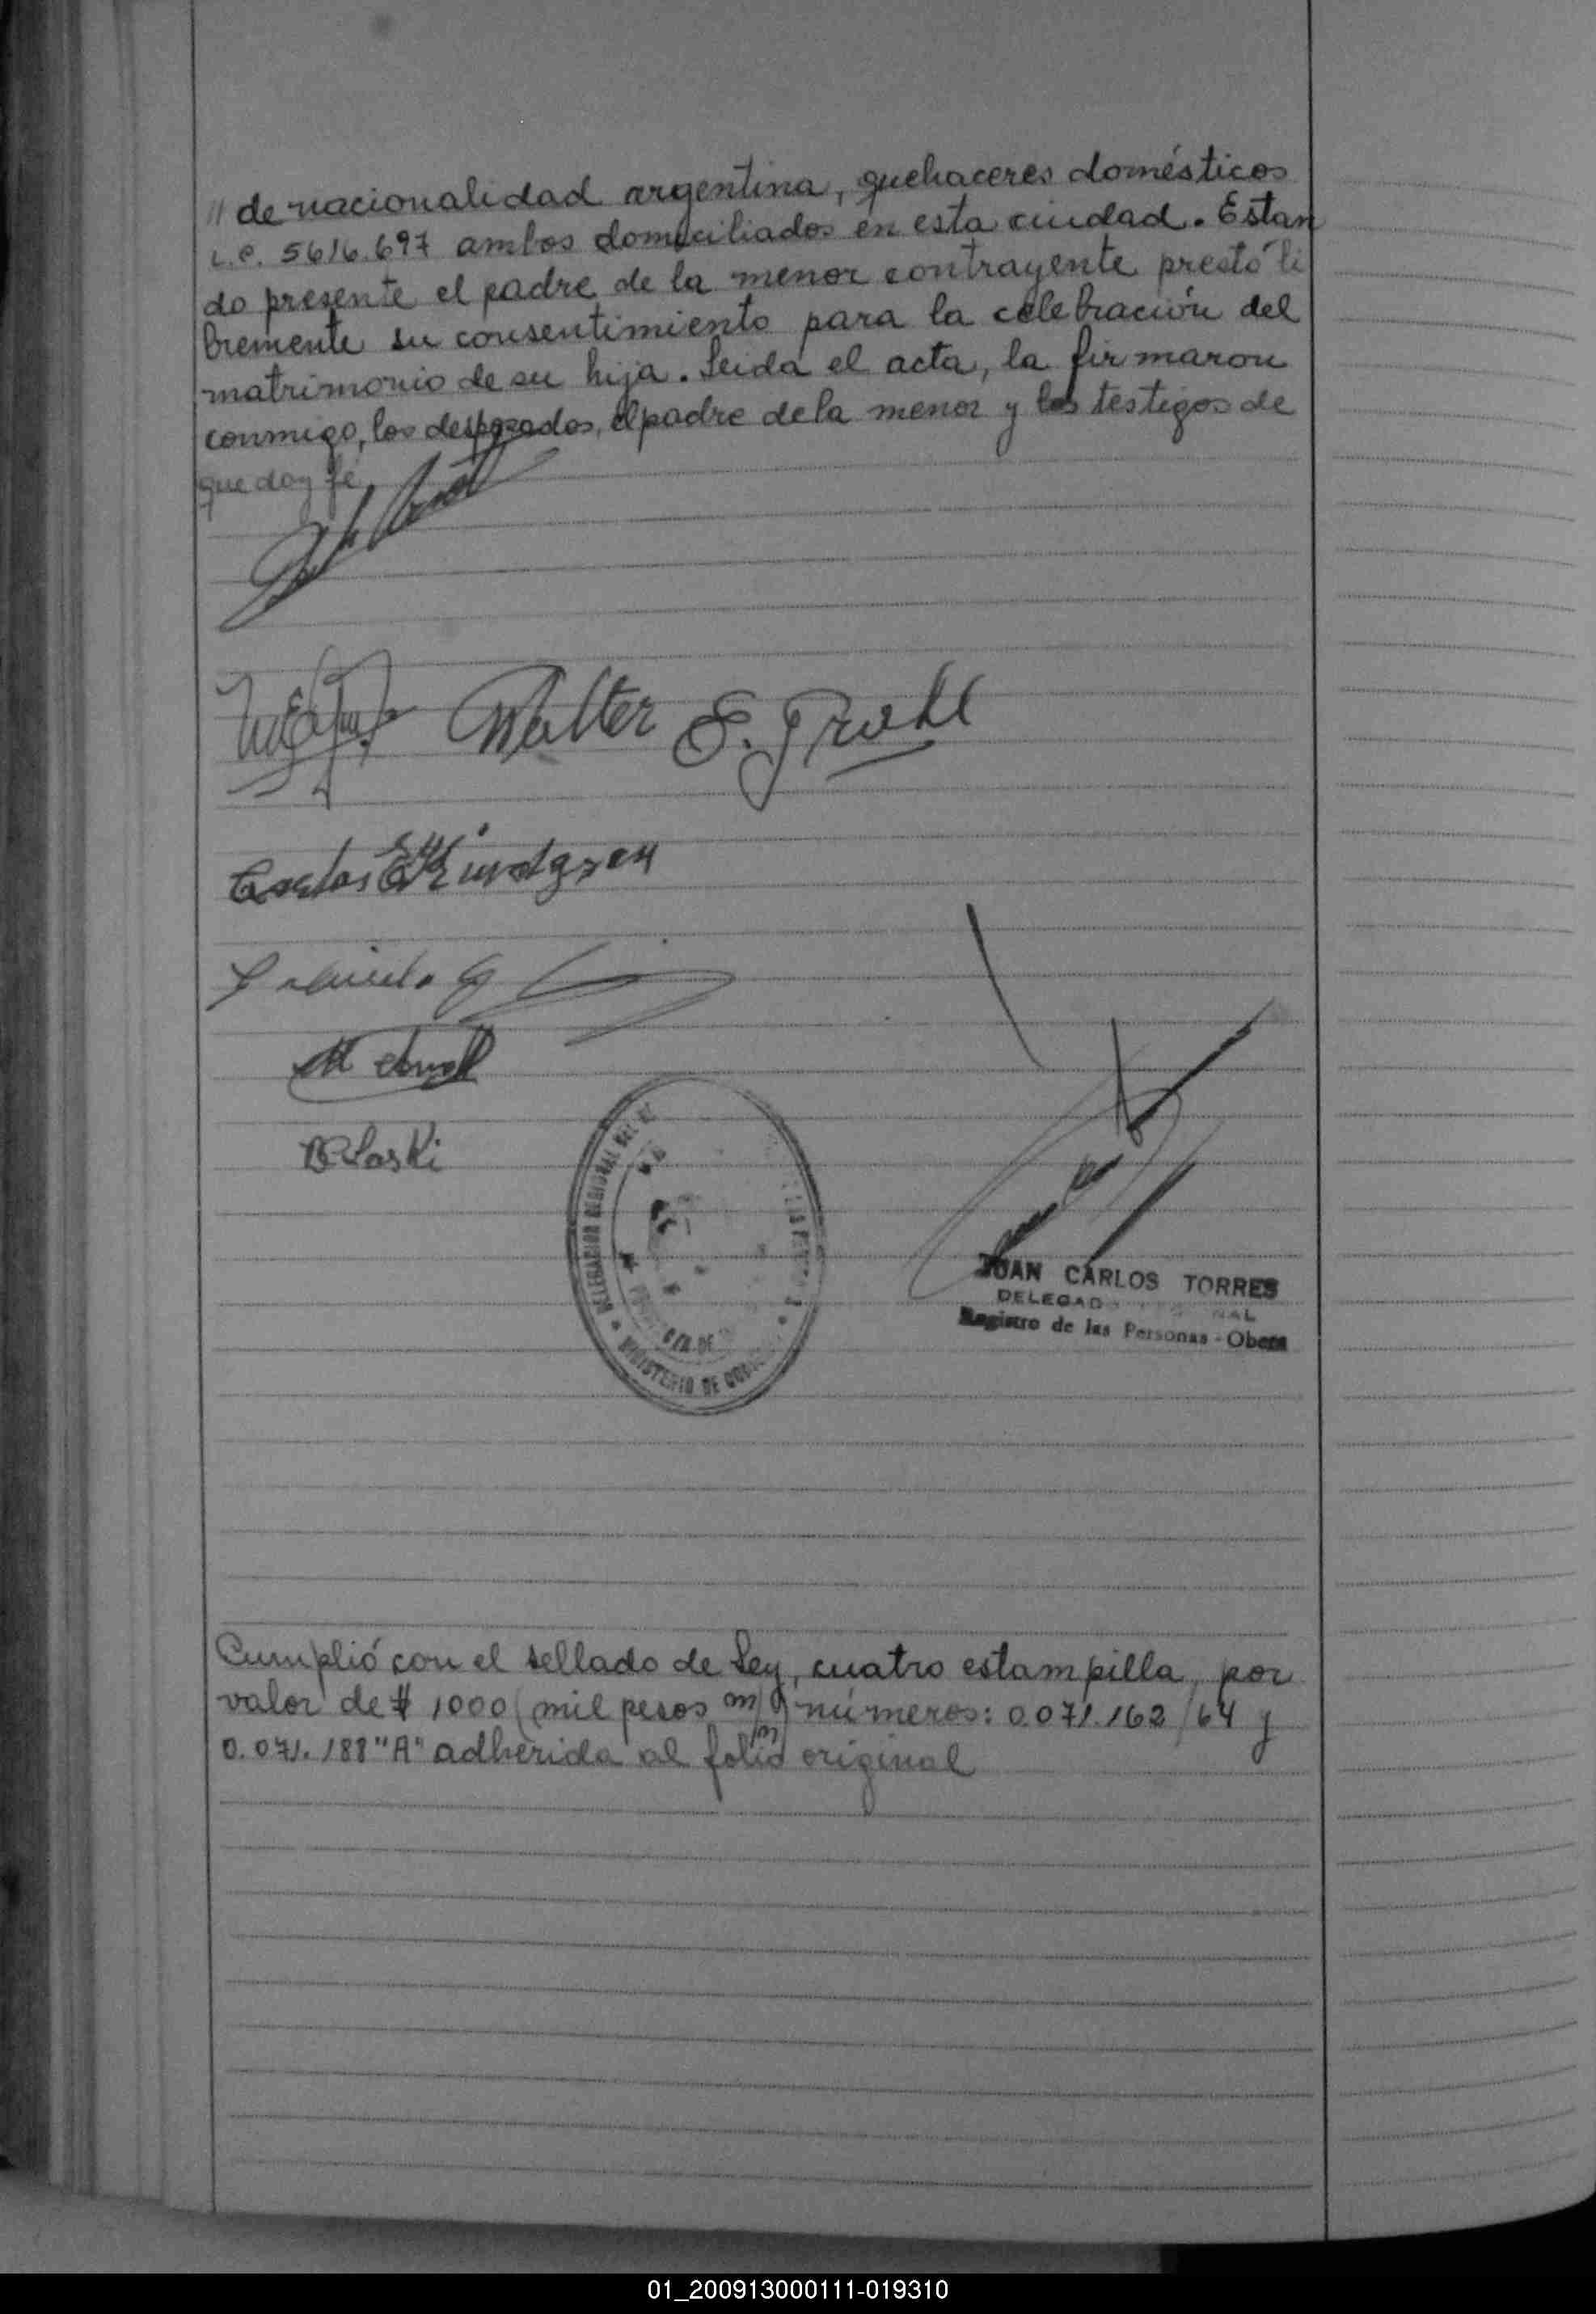 // de nacionalidad argentina, quehaceres domésticos
L.C. 5616.697 ambos domiciliados en esta ciudad. Estan
do presente el padre de la menor contrayente prestó li
bremente su consentimiento para la celebración del
matrimonio de su hija. Leida el acta, la firmaron
conmigo, los desposados, el padre de la menor y los testigos de
que doy fé.
Walter E.
Carlos
JUAN CARLOS TORRES
DELEGADO
Registro de las Personas - Obera
DELEGACION REGIONAL DEL
MINISTERIO DE
Cumplió con el sellado de Ley, cuatro estampilla, por
valor de $ 1000 (mil pesos m/n) números: 0.071.162/64 y
0.071.188 "A" adherida al folio original
01_200913000111-019310